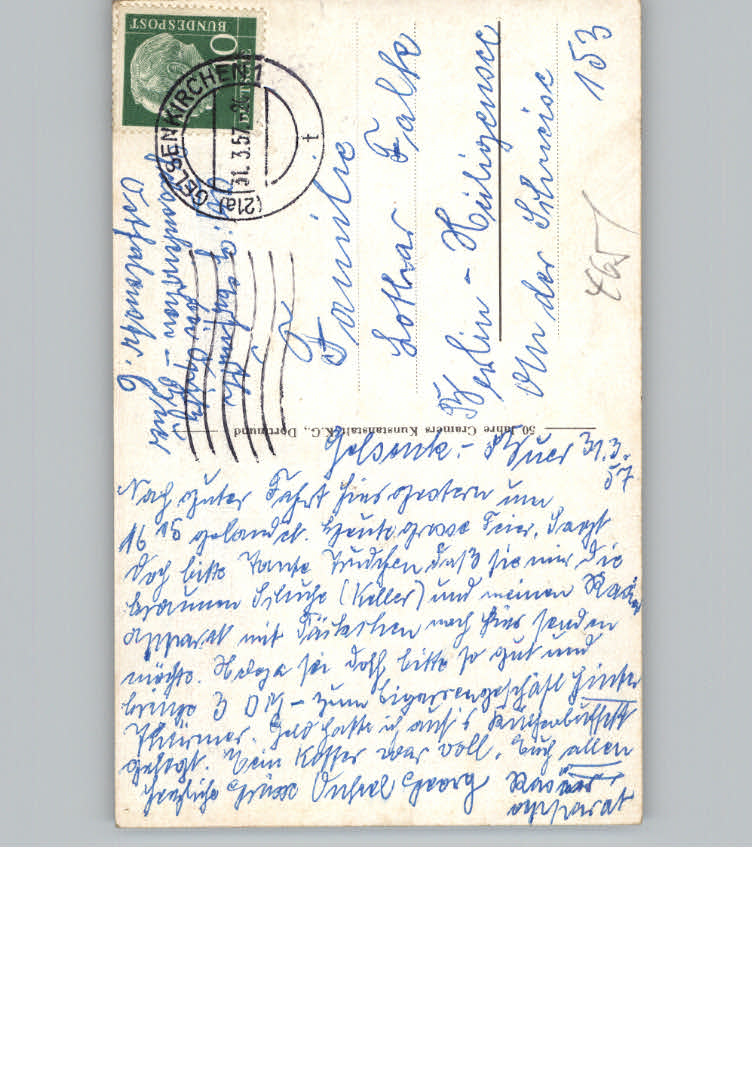 Gelsenk.- Buer 31.3.
57
Nach guter Fahrt hier gestern um
16 15 gelandet. Heute grosse Feier. Sagt
doch bitte Tante Trudchen, daß sie mir die
braunen Schuhe (Keller) und meinen Rasier
apparat mit Täschchen nach hier senden
möchte. Helga sei doch bitte so gut und
bringe 3 DM - zum Cigarrengeschäft hinter
Geld hatte ich auf's Küchenbuffett
gelegt. Mein Koffer war voll. Euch allen
herzliche Grüsse Onkel Georg
Rasier
apparat
Familie
Lothar Falk
Berlin - Heiligensee
An der Schneise
153
465
Gelsenkirchen - Buer
50 Jahre Cramers Kunstanstalt K.G., Dortmund
DEUTSCHE
BUNDESPOST
(21a) GELSENKIRCHEN 1
31.3.57
t